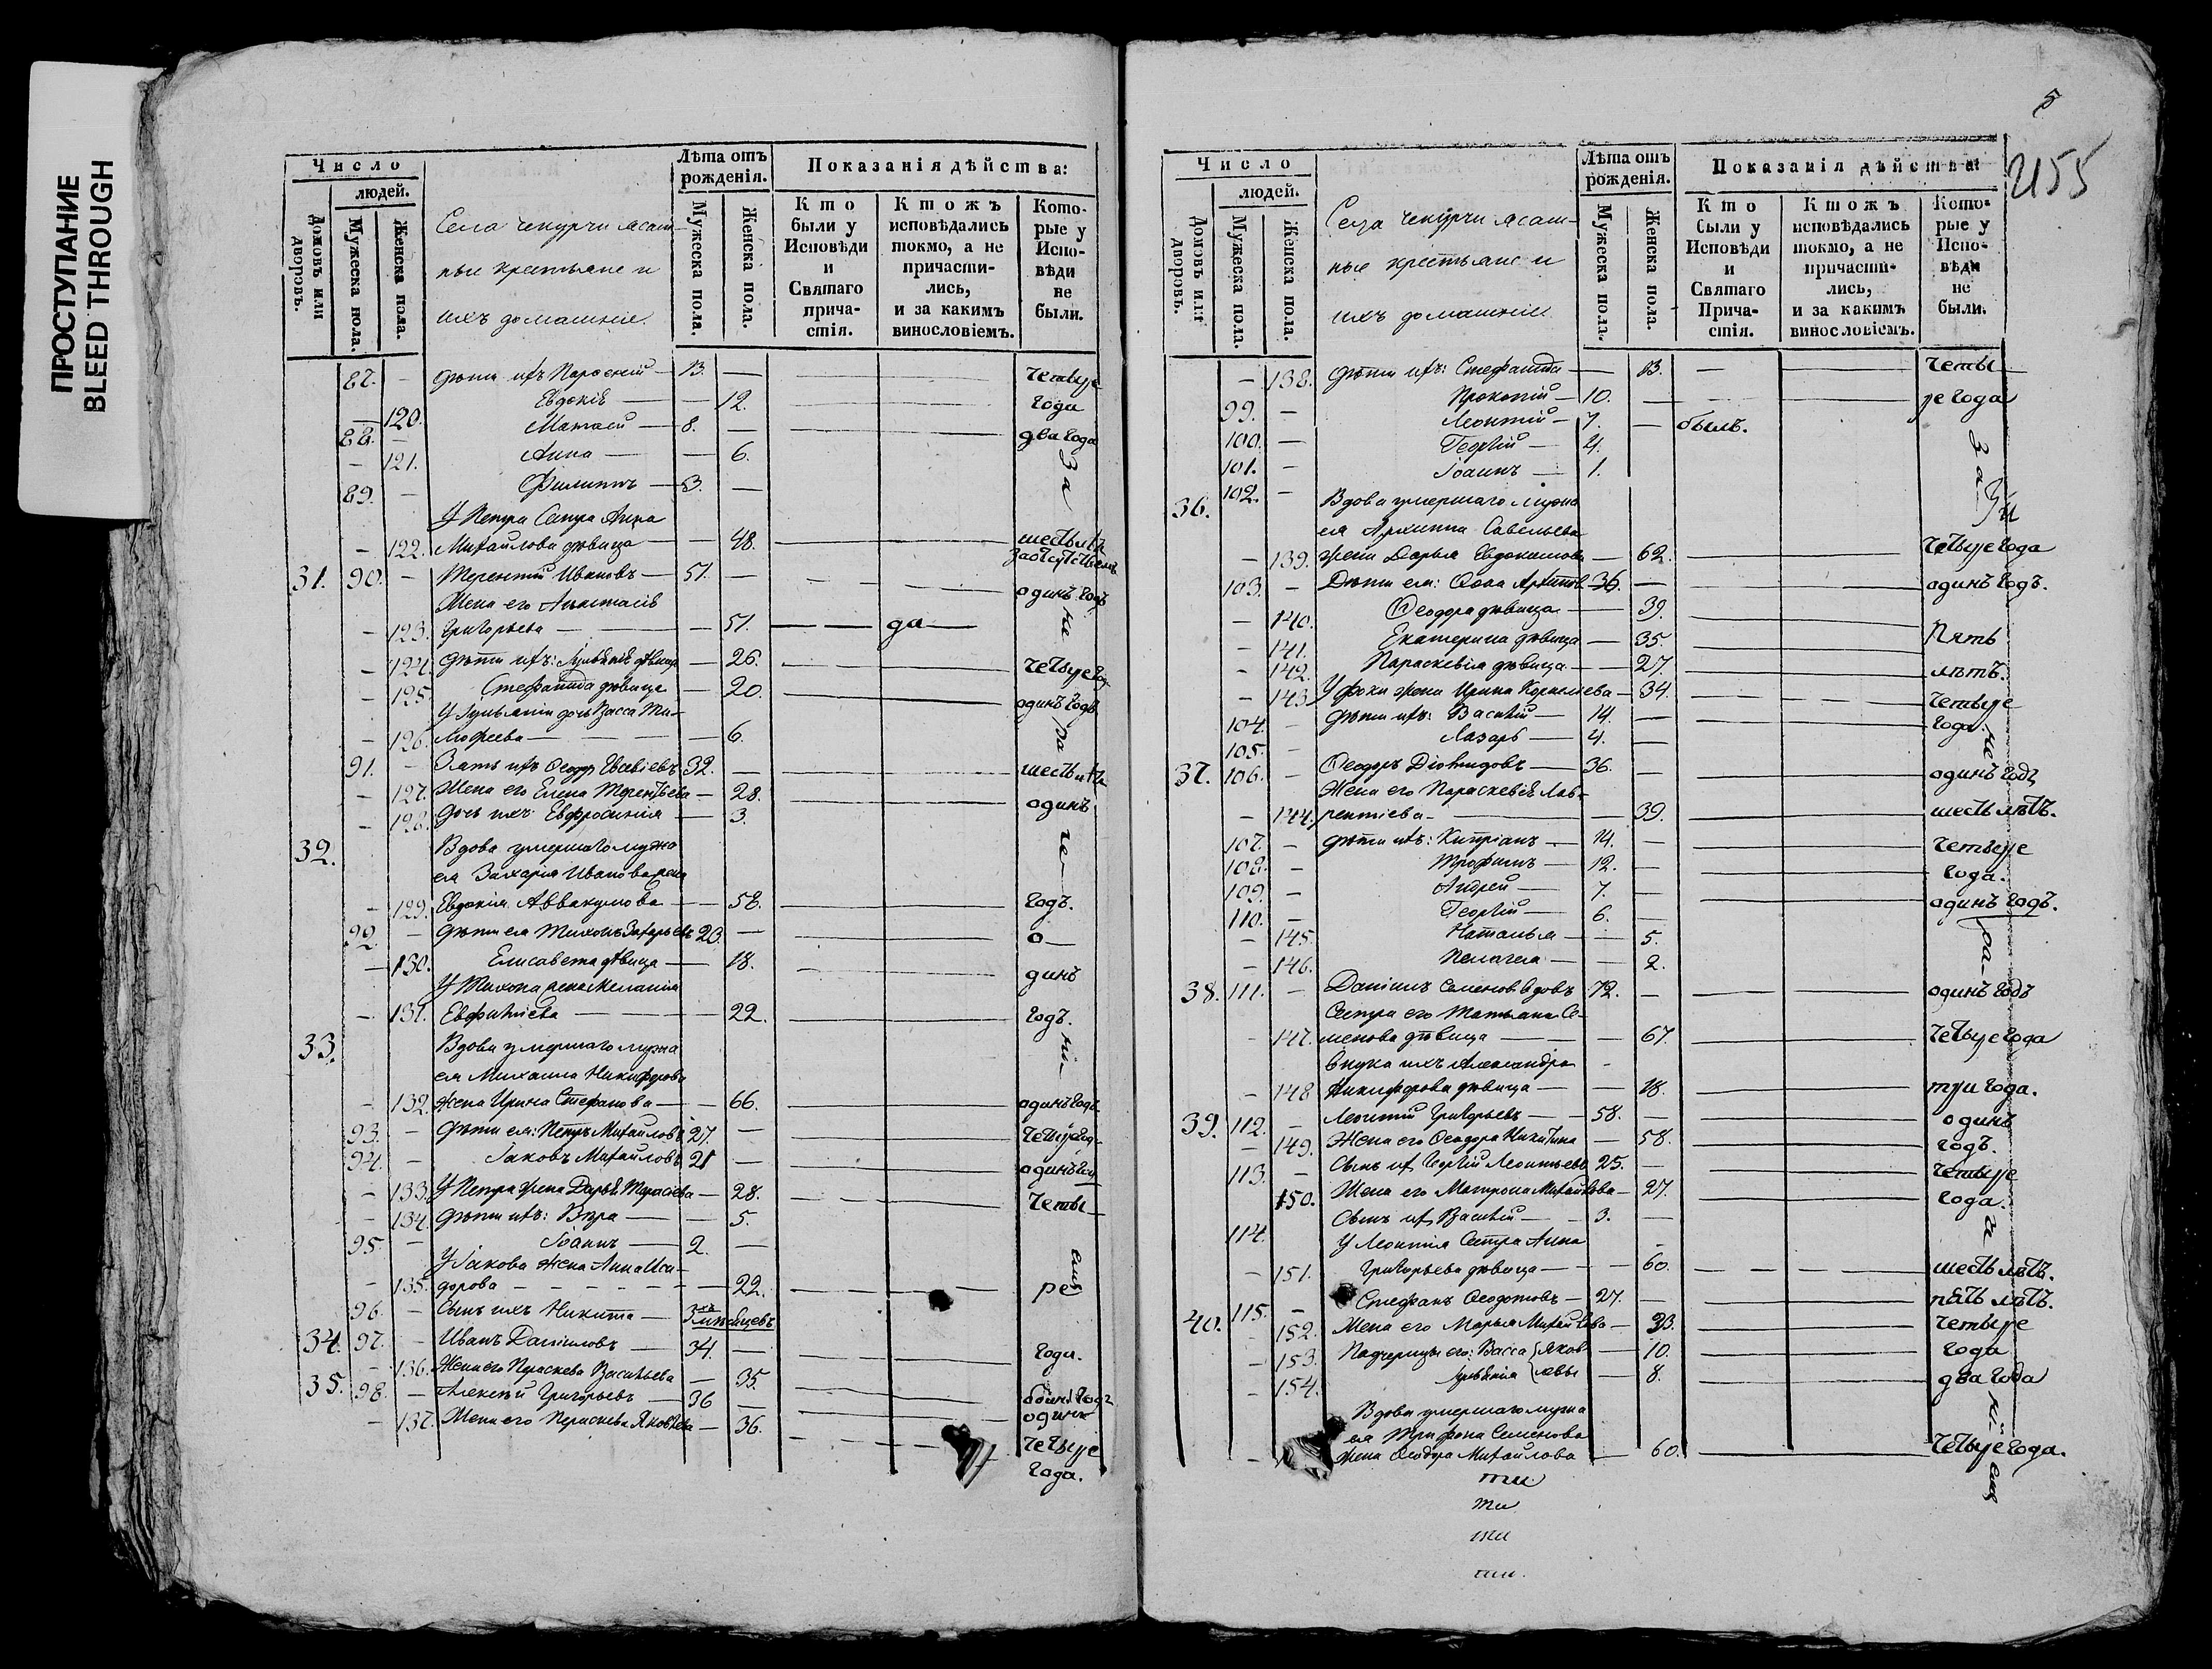 ПРОСТУПАНИЕ
BLEED THROUGH
Число
людей.
Домовъ или дворовъ.
Мужеска пола.
Женска пола.
Села Чекурчи ясаш-
ные крестьяне и
ихъ домашніе.
Лѣта отъ рожденія.
Мужеска пола.
Женска пола.
Показанія дѣйства:
Кто были у Исповѣди и Святаго причастія.
Ктожъ исповѣдались токмо, а не причастились, и за какимъ винословіемъ.
Которые у Исповѣди не были.
87. — дѣти ихъ Парѳеній — 13. — четыре
— 120. Евдокія — 12. года
88. — — 8. — два года
— 121. Анна — 6.
89. — Филиппъ — 3. —
У Петра Сестра Анна
— 122. Михайлова дѣвица — 48. шесть лѣтъ
31. 90. — Терентій Ивановъ — 51. — одинъ годъ
Жена его Анастасія
— 123. Григорьева — 51. — да —
— 124. дѣти ихъ: Гликерія дѣвица — 26. четыре год
— 125. Стефанида дѣвица — 20. одинъ годъ
дочь Васса Ти-
— 126. мофеева — 6.
91. — Зять ихъ Ѳеодор 32. — шесть лѣтъ
— 127. Жена его Елена Терентьева — 28. одинъ
— 128. Дочь ихъ Евфросинія — 3.
32. Вдова умершаго мужа
ея Захарія Иванова жена
— 129. Евдокія Аввакумова — 58. годъ.
92. — дѣти ея Тихонъ Захарьевъ 20. — о—
— 130. Елисавета дѣвица — 18. динъ
У Тихона жена Меланія
— 131. Евфиміева — 22. годъ.
33. Вдова умершаго мужа
ея Михаила Никифорова
— 132. жена Ирина Стефанова — 66. одинъ годъ
93. — дѣти ея: Петръ Михайловъ 27. — четыре год
94. — Іаковъ Михайловъ 21 — одинъ год
— 133. У Петра жена Дарья Тарасіева — 28. четы—
— 134. дѣти ихъ: Вѣра — 5.
95. — Іоаннъ — 2. —
У Іакова жена Анна Иси-
— 135. дорова — 22. ре
96. — Сынъ ихъ Никита — 3хъ мѣсяцевъ
34. 97. — Иванъ Даниловъ — 34. — года.
— 136. Жена его Параскева Васильева — 35. одинъ годъ
35. 98. — Алексѣй Григорьевъ — 36 — одинъ
— 137. Жена его Параскева Яковлева — 36. четыре
года.
За
не
ра
че
ні
емъ
5
2155
Число
людей.
Домовъ или дворовъ.
Мужеска пола.
Женска пола.
Села Чекурчи ясаш-
ные крестьяне и
ихъ домашніе
Лѣта отъ рожденія.
Мужеска пола.
Женска пола.
Показанія дѣйства:
Кто были у Исповѣди и Святаго Причастія.
Ктожъ исповѣдались токмо, а не причастились, и за какимъ винословіемъ.
Которые у Исповѣди не были.
— 138. дѣти ихъ: Стефанида — 13. — четы—
99. — Прокопій — 10. — ре года
100. — Леонтій — 7. — былъ.
101. — Георгій — 4.
102. — Іоаннъ — 1.
36. Вдова умершаго мужа
ея Архиппа Савельева
— 139. жена Дарья Евдокимова — 62. четыре года
103. — Дѣти ея: Ѳока Архипов 36. — одинъ годъ.
— 140. Ѳеодора дѣвица — 39.
— 141. Екатерина дѣвица — 35. Пять
— 142. Параскевія дѣвица — 27. лѣтъ.
— 143. У Фоки жена Ирина Корнилева — 34. четыре
104. — дѣти ихъ: Василій — 14. — года.
105. — Лазарь — 4. —
37. 106. — Ѳеодоръ Діомидовъ — 36. — одинъ годъ
Жена его Параскевія Лав-
— 144. рентіева — 39. шесть лѣтъ.
107. — дѣти ихъ: Кипріанъ — 14. — четыре
108. — Трофимъ — 12. — года.
109. — Андрей — 7. — одинъ годъ.
110. — Георгій — 6. —
— 145. Наталья — 5.
— 146. Пелагея — 2.
38. 111. — Даніилъ Семеновъ вдовъ 72. — одинъ годъ
Сестра его Татьяна Се-
— 147. менова дѣвица — 67. четыре года
Внука ихъ Александра
— 148 Никифорова дѣвица — 18. три года.
39. 112. — Леонтій Григорьевъ — 58. — одинъ
— 149. Жена его Ѳеодора Никитина — 58. годъ.
113. — Сынъ их Георгій Леонтьевъ 25. — четыре
150. Жена его Матрона Михайлова — 27. года.
114. Сынъ их Василій — 3. —
У Леонтія Сестра Анна
— 151. Григорьева дѣвица — 60. шесть лѣтъ.
40. 115. — Стефанъ Ѳеодотовъ — 27. — пять лѣтъ.
— 152. Жена его Марья Михайлова — 33. четыре
— 153. Падчерицы его: Васса Яков — 10. года
— 154. левы — 8. два года
Вдова умершаго мужа
ея Трифона Семенова
— жена Ѳеодора Михайлова — 60. четыре года.
за
не
ра
ні
емъ